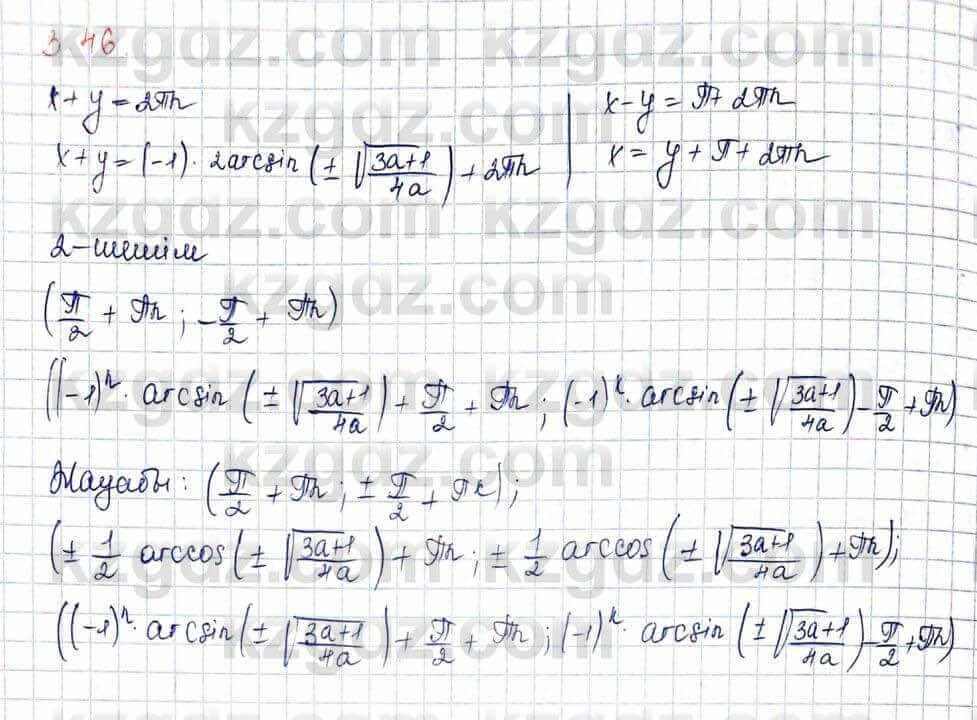 3.46
x+y=2πn | x-y=π+2πn
x+y=(-1)·2arcsin(±√(3a+1)/(4a))+2πn | x=y+π+2πn
2-шешім
(π/2+πn; -π/2+πn)
((-1)ⁿ·arcsin(±√(3a+1)/(4a))+π/2+πn; (-1)ᵏ·arcsin(±√(3a+1)/(4a))-π/2+πn)
Жауабы: (π/2+πn; ±π/2+πk);
(±1/2 arccos(±√(3a+1)/(4a))+πn; ±1/2 arccos(±√(3a+1)/(4a))+πn);
((-1)ⁿ·arcsin(±√(3a+1)/(4a))+π/2+πn; (-1)ᵏ·arcsin(±√(3a+1)/(4a))-π/2+πn)
kzgdz.com
kzgdz.com
kzgdz.com
kzgdz.com
kzgdz.com
kzgdz.com
kzgdz.com
kzgdz.com
kzgdz.com
kzgdz.com
kzgdz.com